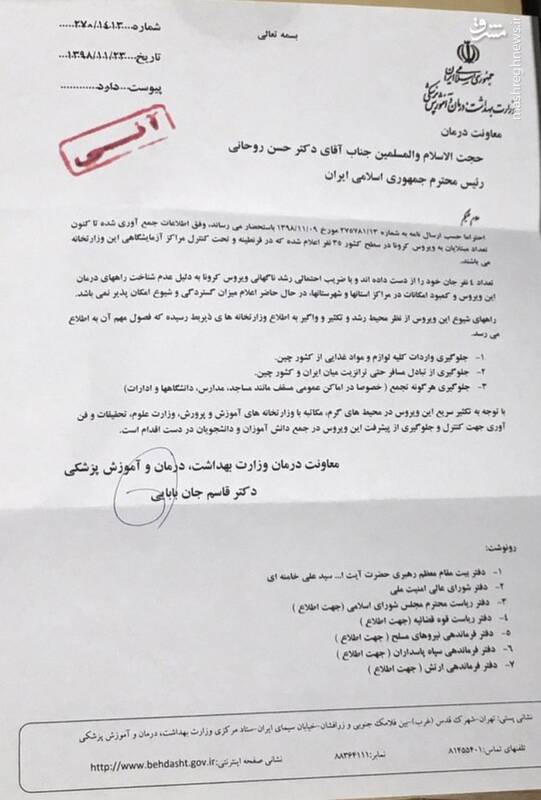 بسمه تعالی
شماره....۲۷۰/۱۴۱۳.....
تاریخ...۱۳۹۸/۱۱/۲۳.....
پیوست...دارد............
آنی
مشرق
mashreghnews.ir
جمهوری اسلامی ایران
وزارت بهداشت، درمان و آموزش پزشکی
معاونت درمان
حجت الاسلام والمسلمین جناب آقای دکتر حسن روحانی
رئیس محترم جمهوری اسلامی ایران
احتراما حسب ارسال نامه به شماره ۲۷۵۷۸۱/۱۳ مورخ ۱۳۹۸/۱۱/۰۹ باستحضار می رساند، وفق اطلاعات جمع آوری شده تا کنون
تعداد مبتلایان به ویروس کرونا در سطح کشور ۳۵ نفر اعلام شده که در قرنطینه و تحت کنترل مراکز آزمایشگاهی این وزارتخانه
می باشند.
تعداد ۴ نفر جان خود را از دست داده اند و با ضریب احتمالی رشد ناگهانی ویروس کرونا به دلیل عدم شناخت راههای درمان
این ویروس و کمبود امکانات در مراکز استانها و شهرستانها، در حال حاضر اعلام میزان گستردگی و شیوع امکان پذیر نمی باشد.
راههای شیوع این ویروس از نظر محیط رشد و تکثیر و واگیر به اطلاع وزارتخانه ها ی ذیربط رسیده که فصول مهم آن به اطلاع
می رسد.
۱- جلوگیری واردات کلیه لوازم و مواد غذایی از کشور چین.
۲- جلوگیری از تبادل مسافر حتی ترانزیت میان ایران و کشور چین.
۳- جلوگیری هرگونه تجمع ( خصوصا در اماکن عمومی مسقف مانند مساجد، مدارس، دانشگاهها و ادارات)
با توجه به تکثیر سریع این ویروس در محیط های گرم، مکاتبه با وزارتخانه های آموزش و پرورش، وزارت علوم، تحقیقات و فن
آوری جهت کنترل و جلوگیری از پیشرفت این ویروس در جمع دانش آموزان و دانشجویان در دست اقدام است.
معاونت درمان وزارت بهداشت، درمان و آموزش پزشکی
دکتر قاسم جان بابایی
رونوشت:
۱- دفتر بیت مقام معظم رهبری حضرت آیت ا... سید علی خامنه ای
۲- دفتر شورای عالی امنیت ملی
۳- دفتر ریاست محترم مجلس شورای اسلامی (جهت اطلاع )
۴- دفتر ریاست قوه قضائیه (جهت اطلاع )
۵- دفتر فرماندهی نیروهای مسلح ( جهت اطلاع )
۶- دفتر فرماندهی سپاه پاسداران ( جهت اطلاع )
۷- دفتر فرماندهی ارتش ( جهت اطلاع )
نشانی پستی: تهران-شهرک قدس (غرب)-بین فلامک جنوبی و زرافشان-خیابان سیمای ایران-ستاد مرکزی وزارت بهداشت، درمان و آموزش پزشکی
تلفنهای تماس: ۸۱۴۵۵۴۰۱ نمابر: ۸۸۳۶۴۱۱۱ نشانی صفحه اینترنتی: http://www.behdasht.gov.ir